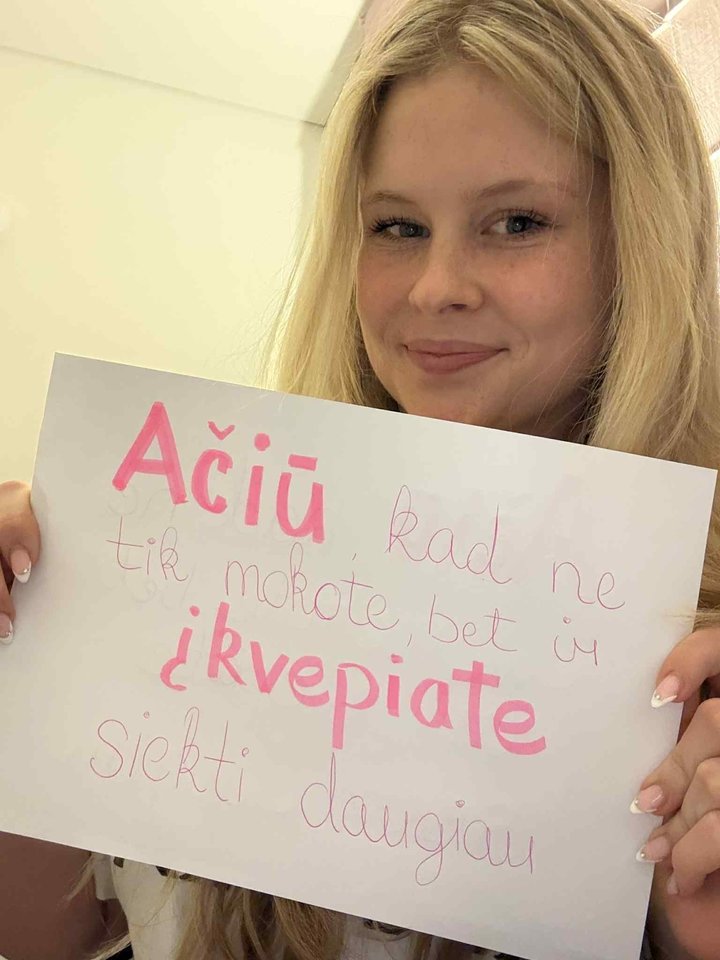 Ačiū, kad ne
tik mokote, bet ir
įkvepiate
siekti daugiau